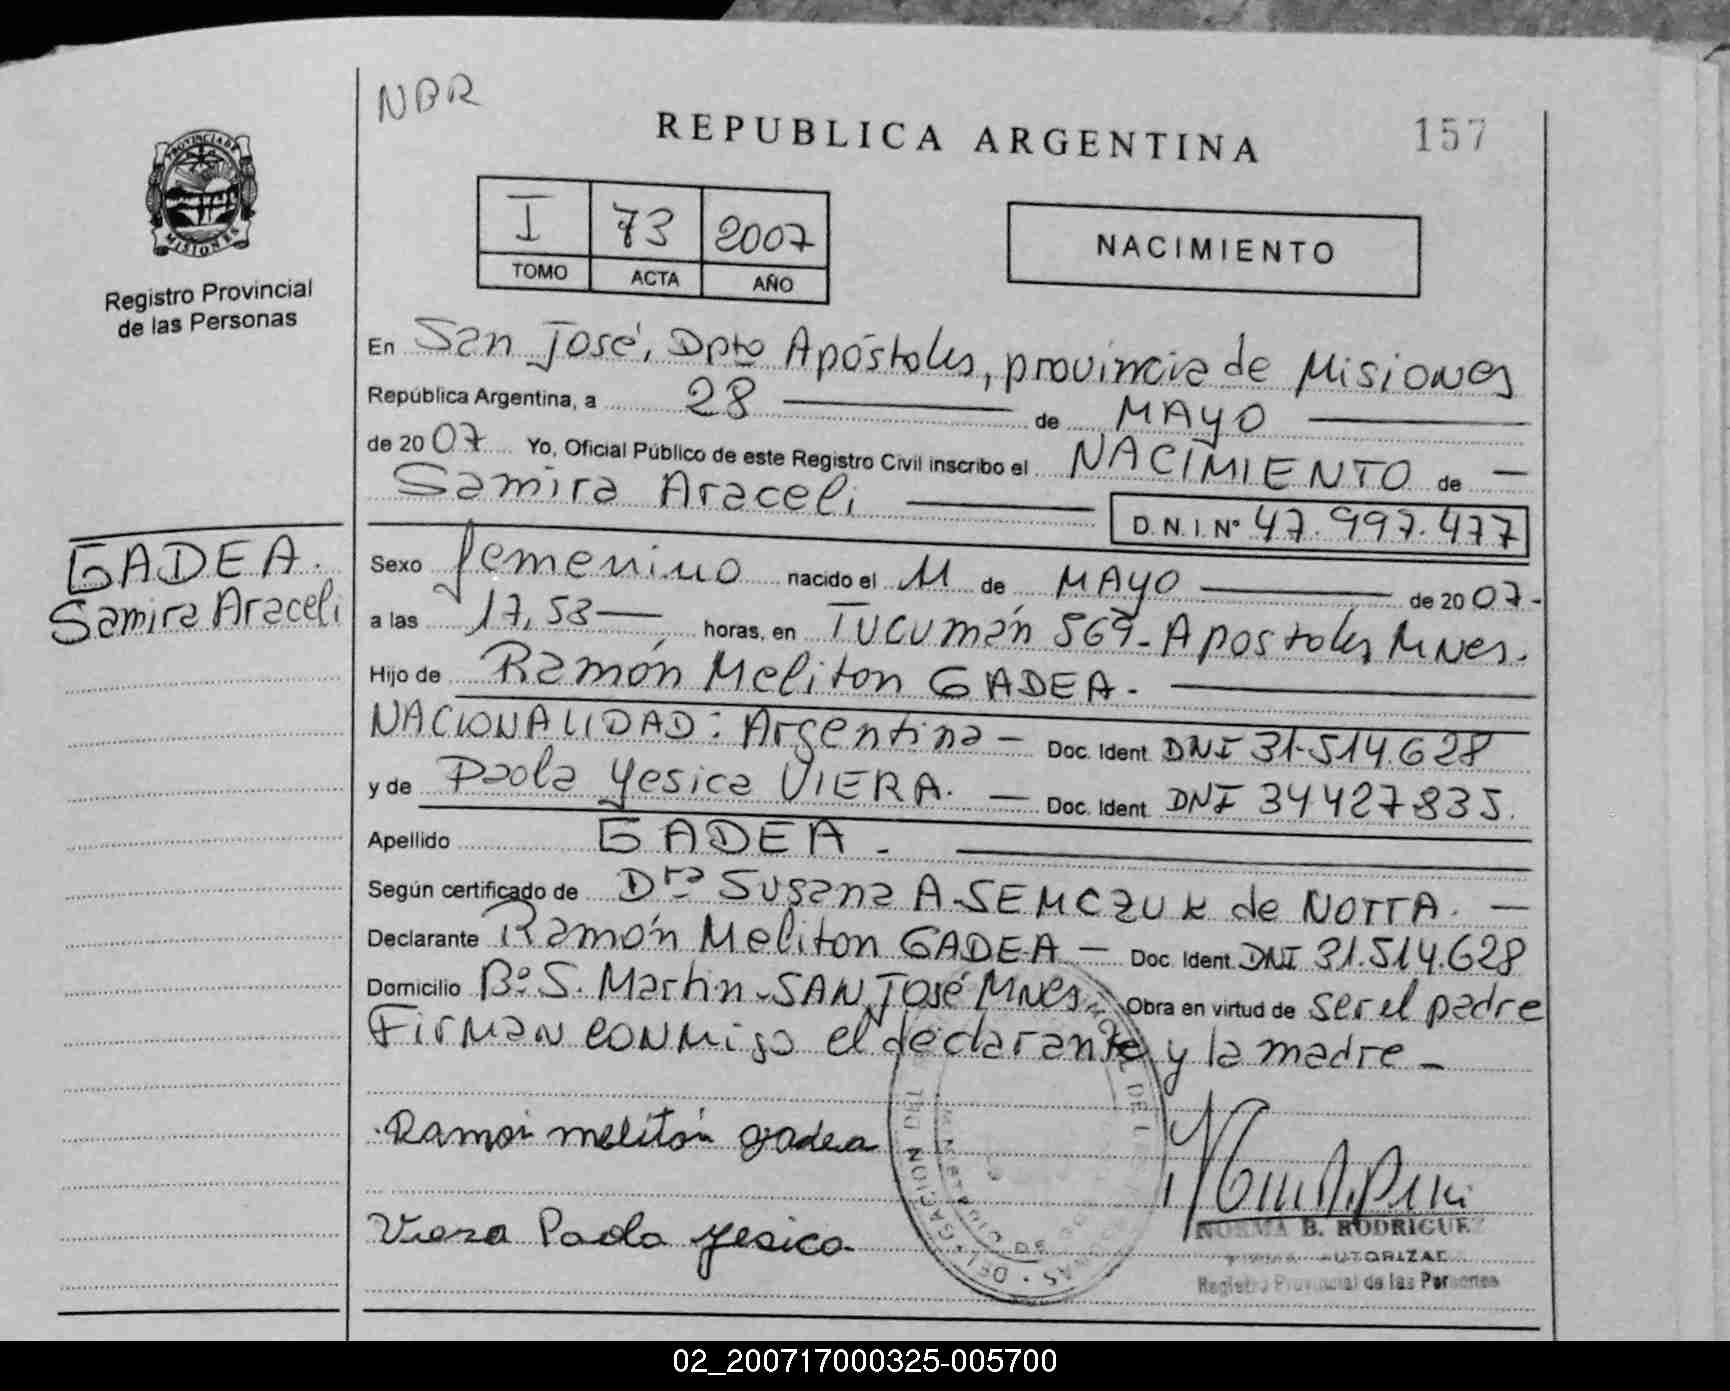 NBR
REPUBLICA ARGENTINA
157
PROVINCIA DE
MISIONES
Registro Provincial
de las Personas
I 73 2007
TOMO ACTA AÑO
NACIMIENTO
En San José, Dpto Apóstoles, provincia de Misiones
República Argentina, a 28 de MAYO
de 2007 Yo, Oficial Público de este Registro Civil inscribo el NACIMIENTO de
Samira Araceli
D.N.I. Nº 47.997.477
GADEA.
Samira Araceli
Sexo femenino nacido el 11 de MAYO de 2007-
a las 17,53 horas, en Tucumán 569- Apostoles Mnes.
Hijo de Ramón Meliton GADEA.
NACIONALIDAD: Argentina - Doc. Ident. DNI 31.514.628
y de Paola Yesica VIERA. - Doc. Ident. DNI 34427835.
Apellido GADEA -
Según certificado de Dra Susana A. SEMCZUK de NOTTA. -
Declarante Ramón Meliton GADEA - Doc. Ident. DNI 31.514.628
Domicilio Bº S. Martin - SAN José Mnes Obra en virtud de ser el padre
Firman conmigo el declarante y la madre -
Ramon melitón gadea
Viera Paola Yesica
NORMA B. RODRIGUEZ
Registro Provincial de las Personas
02_200717000325-005700